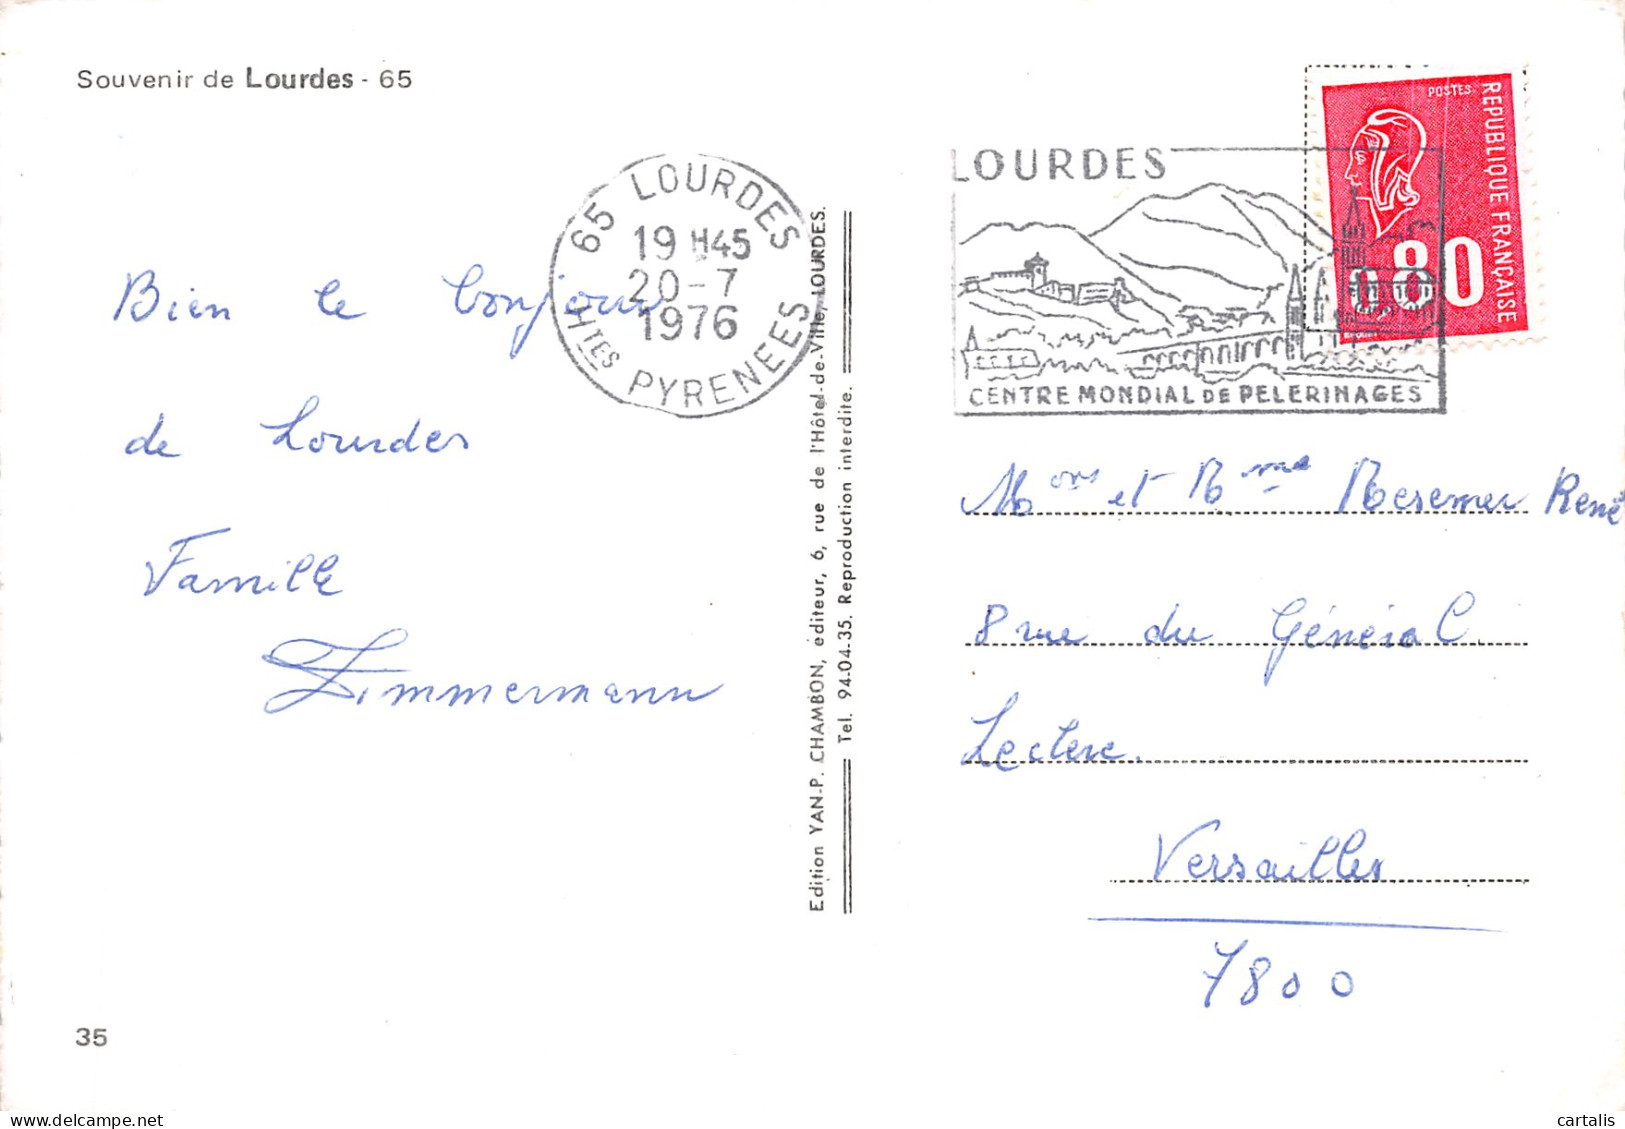 Souvenir de Lourdes - 65
65 LOURDES
19H45
20-7
1976
HTES PYRENEES
LOURDES
CENTRE MONDIAL DE PELERINAGES
POSTES
REPUBLIQUE FRANÇAISE
0,80
Bien le bonjour
de Lourdes
Famille
Zimmermann
Edition YAN-P. CHAMBON, éditeur, 6, rue de l'Hôtel-de-Ville, LOURDES.
Tel. 94-04-35. Reproduction interdite.
Mons et Mme Mesemer René
8 rue du Général
Leclerc.
Versailles
7800
35
cartalis